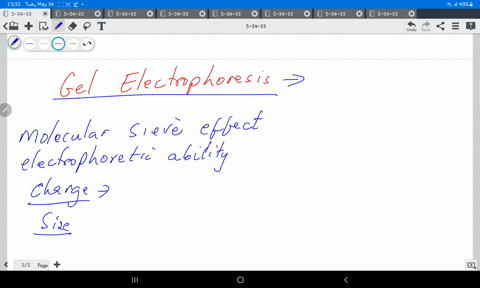 13:31 Tue, May 24
49%
5-24-22 5-24-22 5-24-22 5-24-22 5-24-22 5-24-22 5-24-22
5-24-22
Undo Redo
Gel Electrophoresis →
Molecular sieve effect
electrophoretic ability
Charge →
Size
2/2 Page